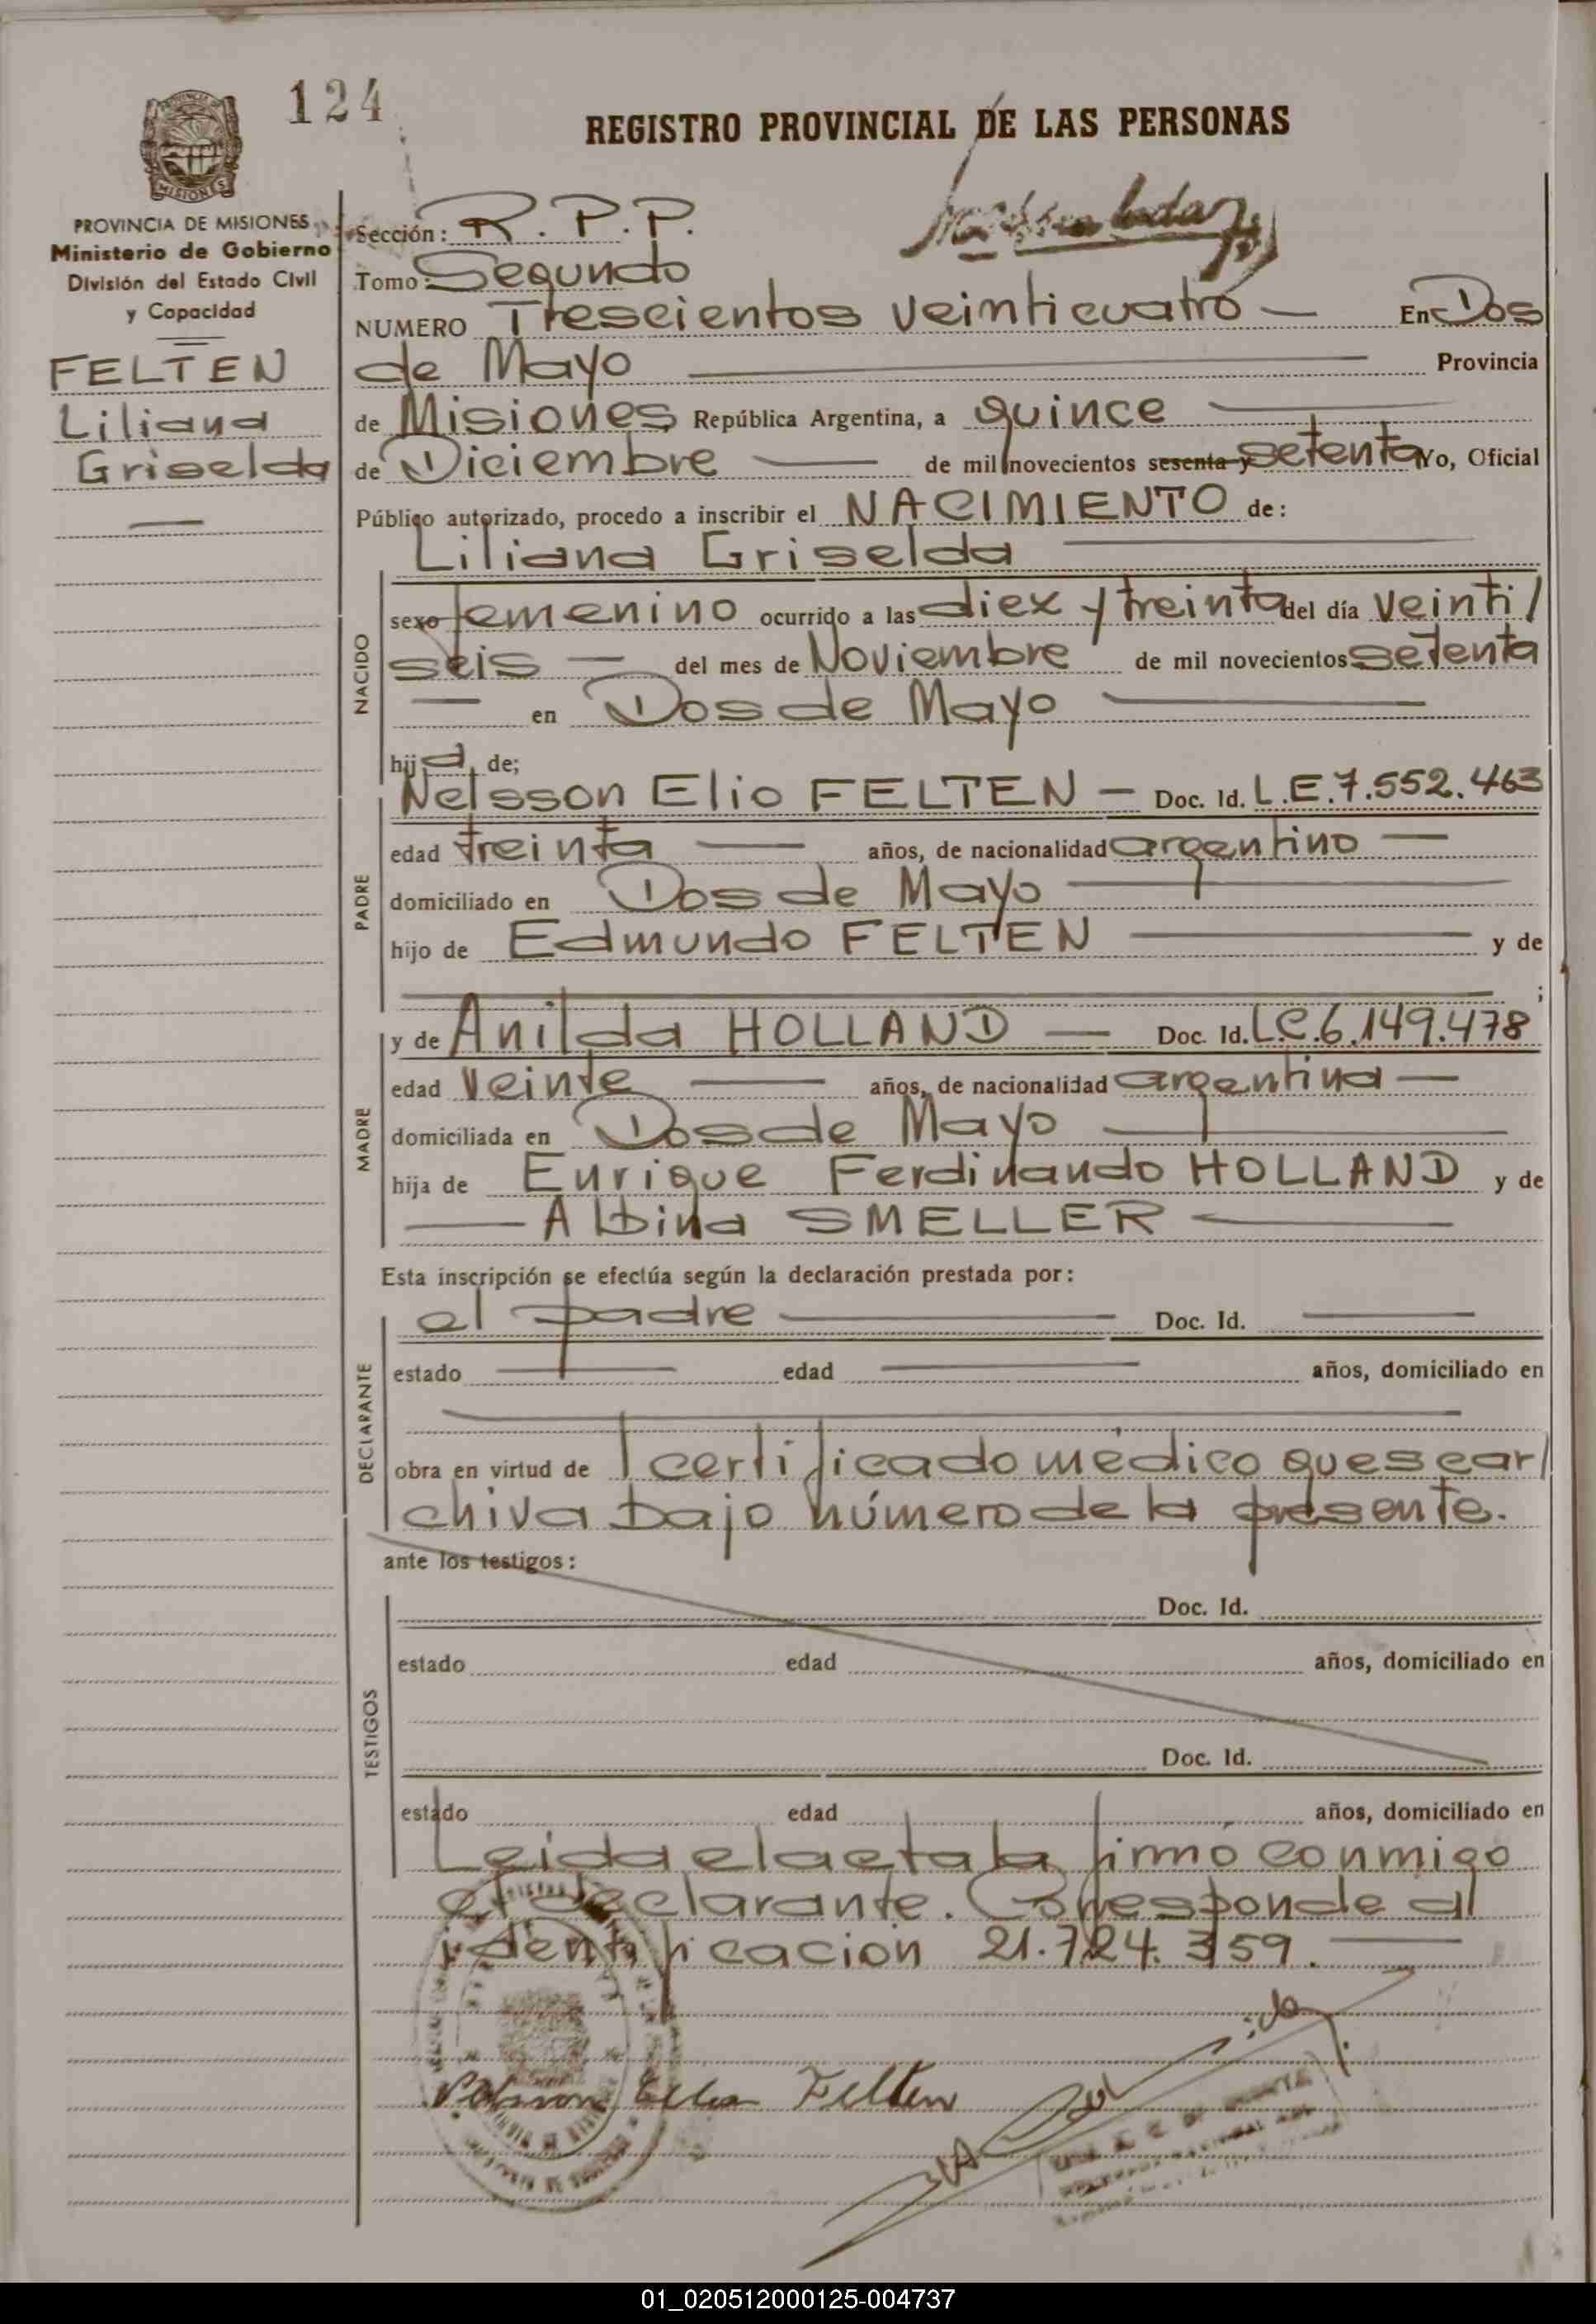 124
REGISTRO PROVINCIAL DE LAS PERSONAS
MISIONES
PROVINCIA DE MISIONES
Ministerio de Gobierno
División del Estado Civil
y Capacidad
FELTEN
Liliana
Griselda
Sección: R. P. P.
Tomo: Segundo
NUMERO Trescientos veinticuatro — En Dos
de Mayo — Provincia
de Misiones República Argentina, a quince —
de Diciembre — de mil novecientos sesenta y setenta Yo, Oficial
Público autorizado, procedo a inscribir el NACIMIENTO de:
Liliana Griselda —
NACIDO
sexo femenino ocurrido a las diez y treinta del día veinti/
seis — del mes de Noviembre de mil novecientos setenta
— en Dos de Mayo —
hija de;
PADRE
Nelsson Elio FELTEN — Doc. Id. L.E.7.552.463
edad treinta — años, de nacionalidad argentino —
domiciliado en Dos de Mayo —
hijo de Edmundo FELTEN — y de
— ;
MADRE
y de Anilda HOLLAND — Doc. Id. L.C.6.149.478
edad veinte — años, de nacionalidad argentina —
domiciliada en Dos de Mayo —
hija de Enrique Ferdinando HOLLAND y de
— Albina SMELLER —
Esta inscripción se efectúa según la declaración prestada por:
DECLARANTE
el padre — Doc. Id. —
estado — edad — años, domiciliado en
—
obra en virtud de certificado médico que se ar/
chiva bajo número de la presente.
ante los testigos:
TESTIGOS
Doc. Id.
estado edad años, domiciliado en
Doc. Id.
estado edad años, domiciliado en
Leida el acta la firmó conmigo
el declarante. Corresponde al
identificacion 21.724.359. —
Felten
01_020512000125-004737